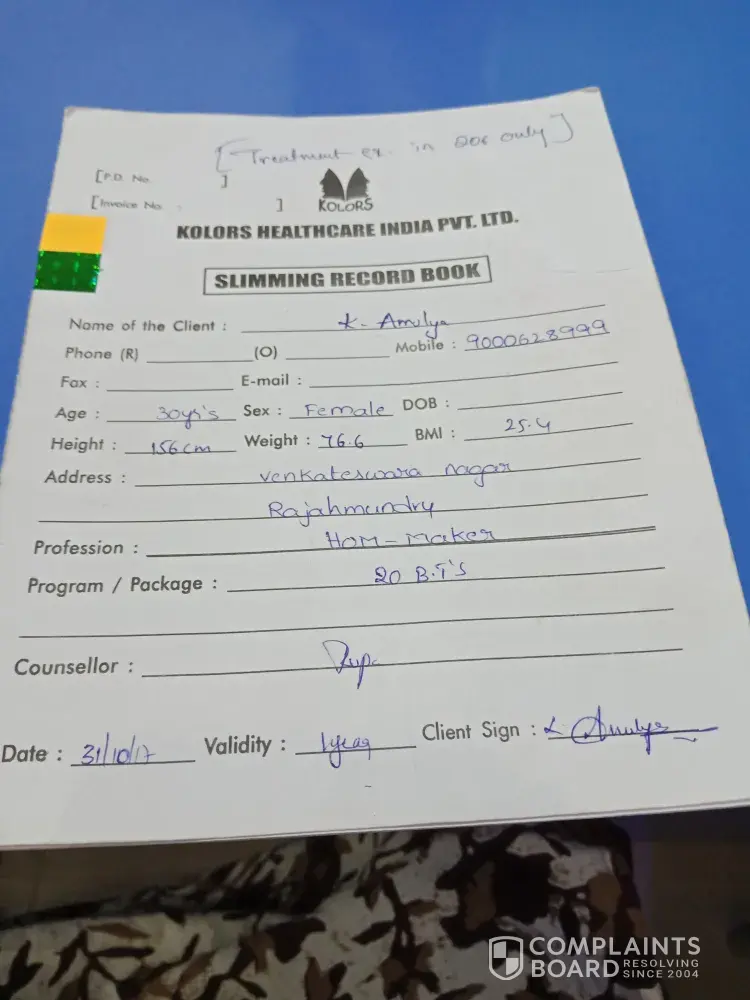 [Treatment ex. in 206 only]
[P.D. No. ]
[Invoice No. ]
KOLORS
KOLORS HEALTHCARE INDIA PVT. LTD.
SLIMMING RECORD BOOK
Name of the Client : K. Amulya
Phone (R) (O) Mobile : 9000628999
Fax : E-mail :
Age : 30yr's Sex : Female DOB :
Height : 156 cm Weight : 76.6 BMI : 25.4
Address : Venkateswara nagar
Rajahmundry
Profession : HOM-Maker
Program / Package : 20 B.T'S
Counsellor :
Date : 31/10/17 Validity : 1year Client Sign : K Amulya
COMPLAINTS
BOARD RESOLVING SINCE 2004